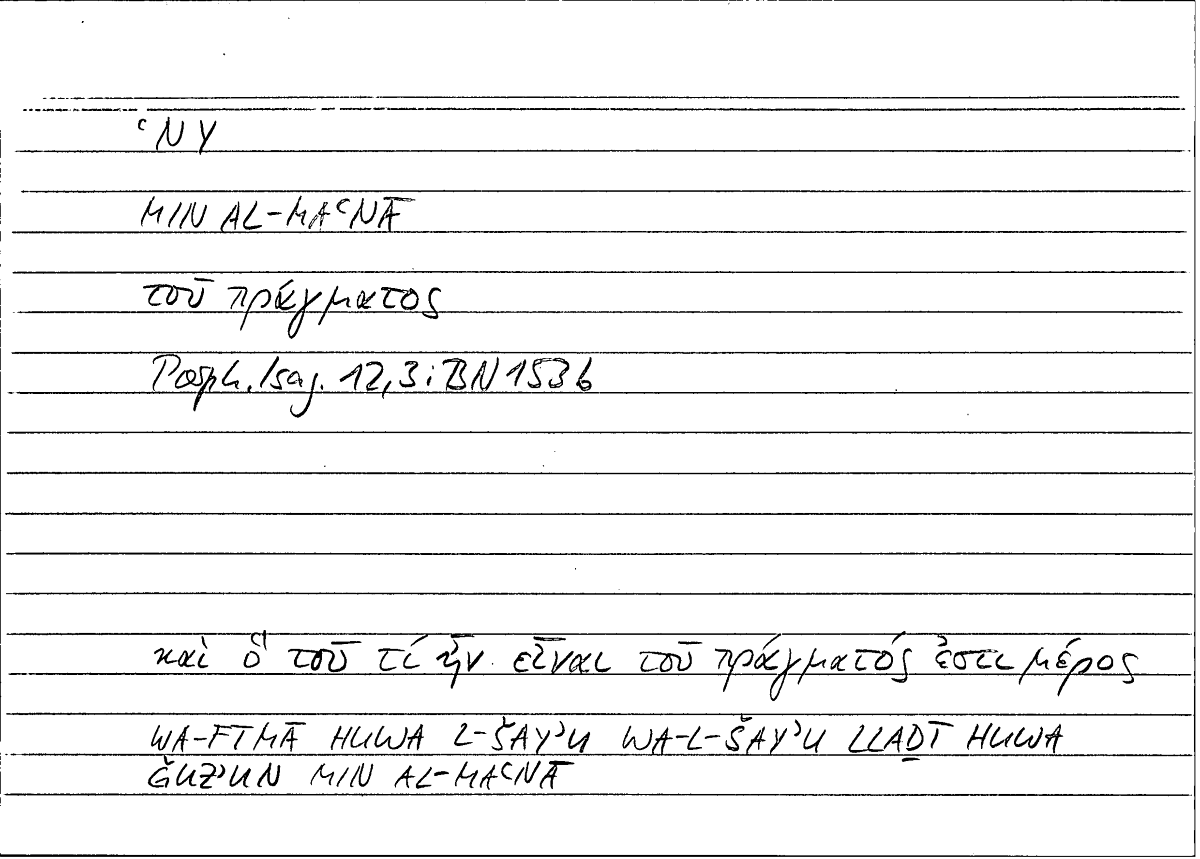 ʿNY
MIN AL-MAʿNĀ
τοῦ πράγματος
Porph. Isag. 12,3; BN 153b
καὶ ὃ τοῦ τί ἦν εἶναι τοῦ πράγματός ἐστι μέρος
WA-FĪMĀ HUWA L-ŠAYʾU WA-L-ŠAYʾU LLAḎĪ HUWA
ǦUZʾUN MIN AL-MAʿNĀ